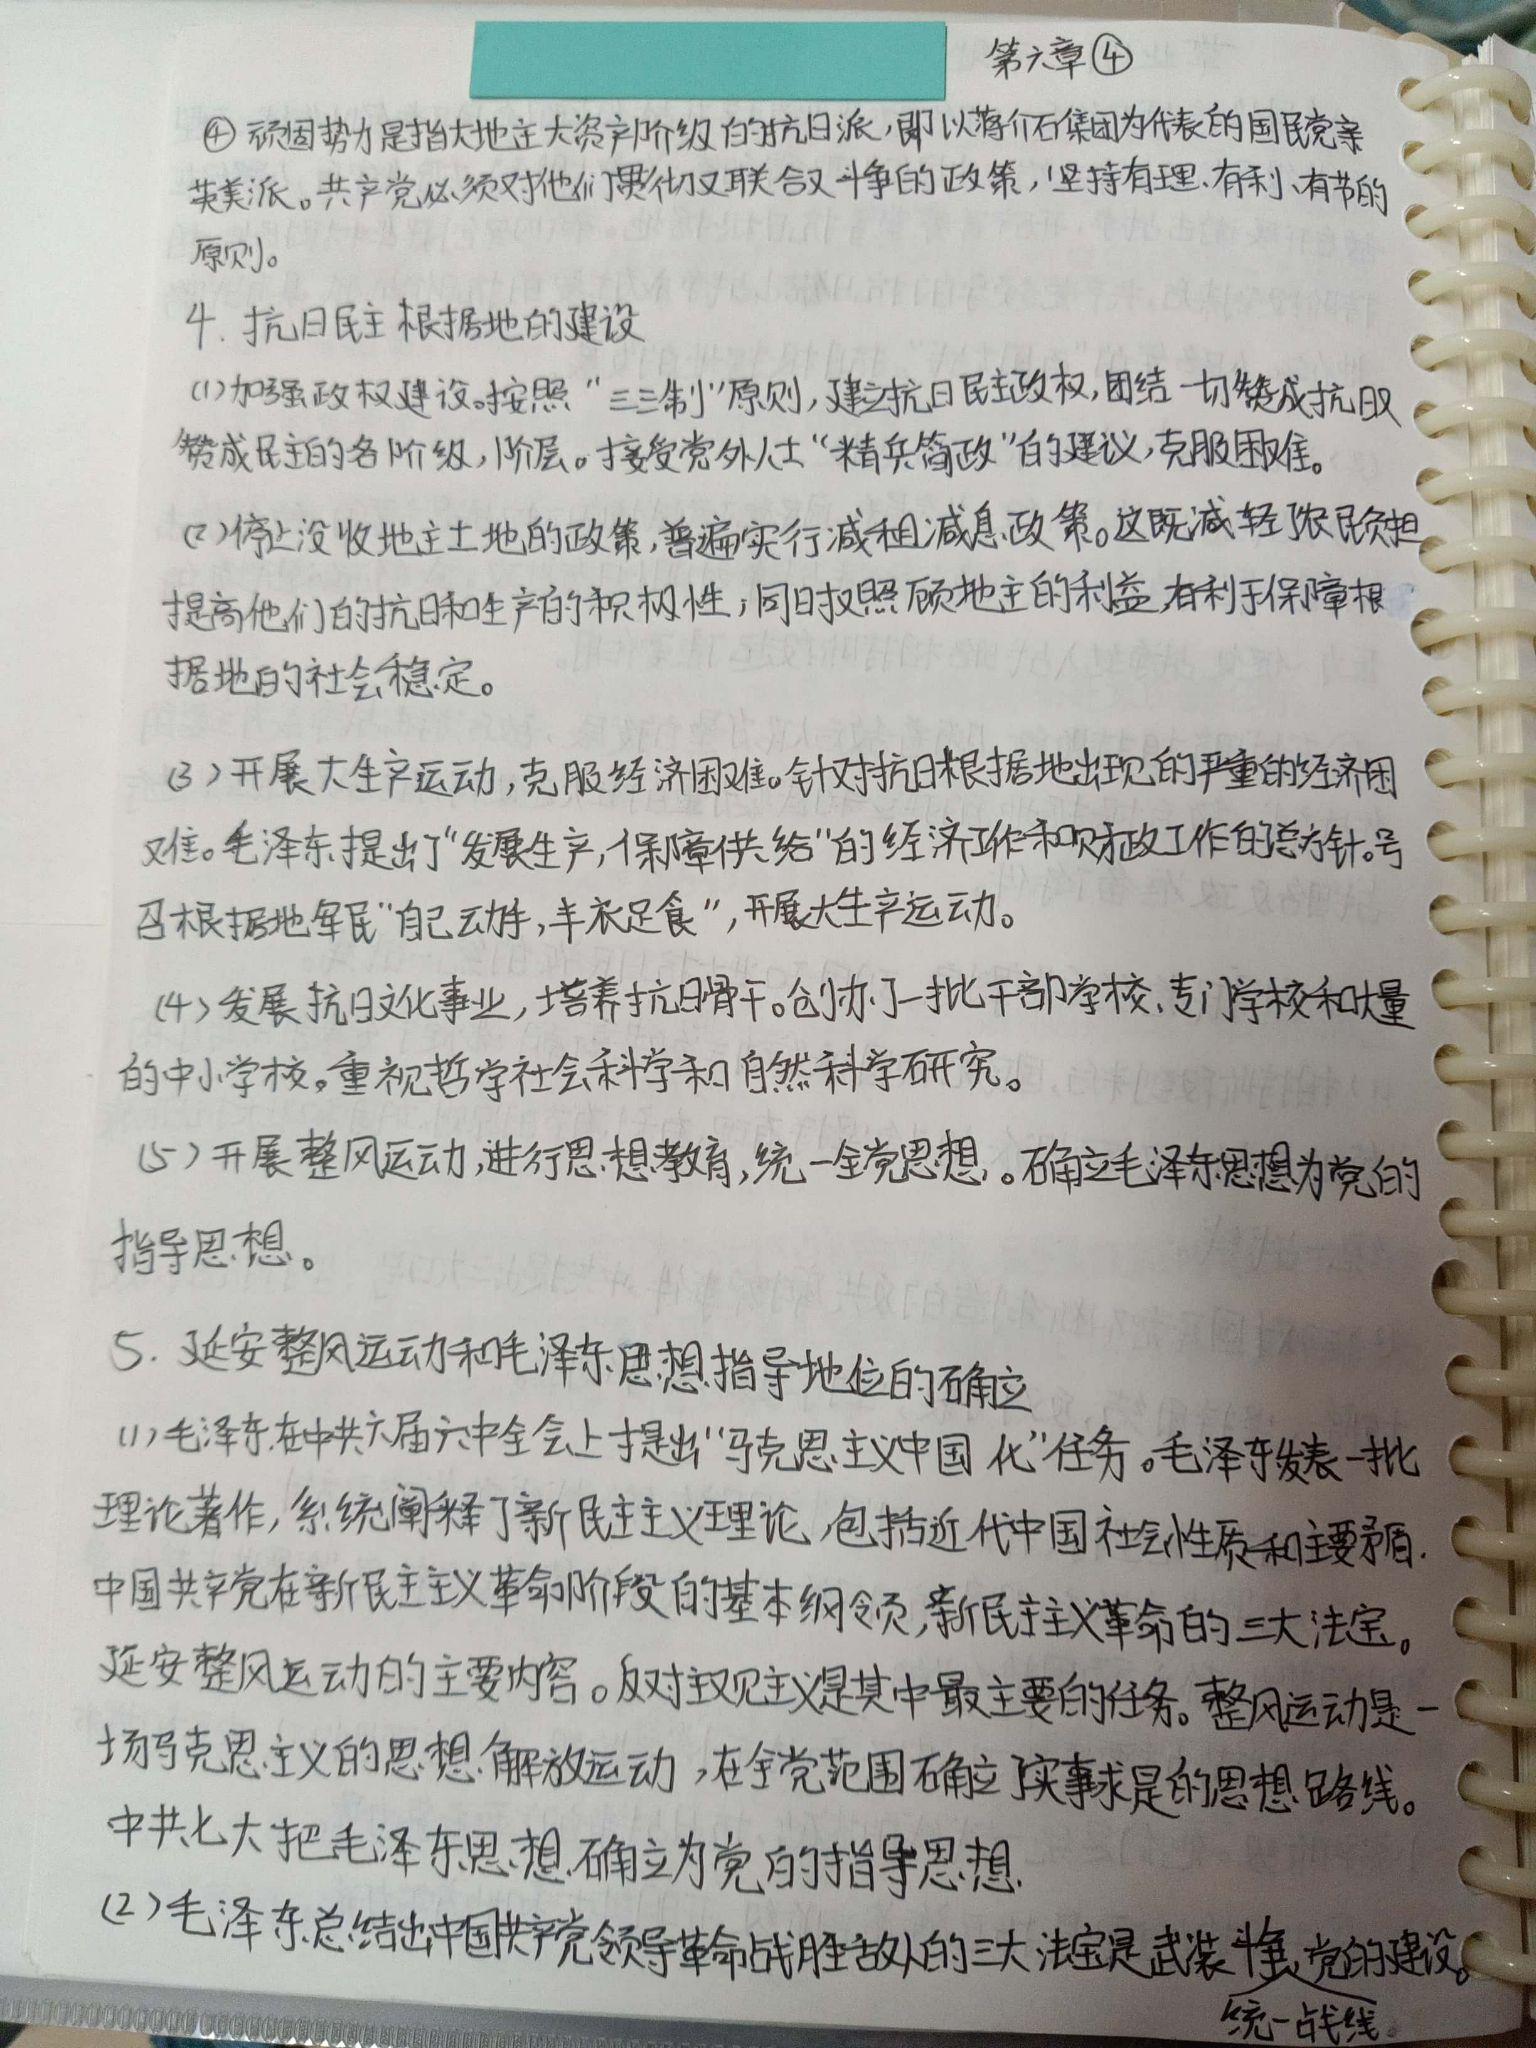 第六章④
④ 顽固势力是指大地主大资产阶级的抗日派，即以蒋介石集团为代表的国民党亲
英美派。共产党必须对他们贯彻又联合又斗争的政策，坚持有理、有利、有节的
原则。
4. 抗日民主根据地的建设
(1)加强政权建设。按照“三三制”原则，建立抗日民主政权，团结一切赞成抗日又
赞成民主的各阶级，阶层。接受党外人士“精兵简政”的建议，克服困难。
(2)停止没收地主土地的政策，普遍实行减租减息政策。这既减轻了农民负担
提高他们的抗日和生产的积极性，同时又照顾地主的利益，有利于保障根
据地的社会稳定。
(3)开展大生产运动，克服经济困难。针对抗日根据地出现的严重的经济困
难。毛泽东提出了“发展生产，保障供给”的经济工作和财政工作的总方针。号
召根据地军民“自己动手，丰衣足食”，开展大生产运动。
(4)发展抗日文化事业，培养抗日骨干。创办了一批干部学校、专门学校和大量
的中小学校。重视哲学社会科学和自然科学研究。
(5)开展整风运动，进行思想教育，统一全党思想。确立毛泽东思想为党的
指导思想。
5. 延安整风运动和毛泽东思想指导地位的确立
(1)毛泽东在中共六届六中全会上提出“马克思主义中国化”任务。毛泽东发表一批
理论著作，系统阐释了新民主主义理论，包括近代中国社会性质和主要矛盾.
中国共产党在新民主主义革命阶段的基本纲领，新民主主义革命的三大法宝。
延安整风运动的主要内容。反对主观主义是其中最主要的任务。整风运动是一
场马克思主义的思想解放运动，在全党范围确立了实事求是的思想路线。
中共七大把毛泽东思想确立为党的指导思想.
(2)毛泽东总结出中国共产党领导革命战胜敌人的三大法宝是武装斗争、党的建设。
统一战线.